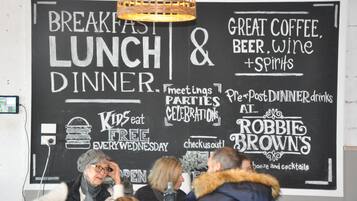 BREAKFAST
LUNCH
DINNER.
&
GREAT COFFEE,
BEER, WINE
+ SPIRITS
meetings
PARTIES
CELEBRATIONS
KIDS eat
FREE
EVERY WEDNESDAY
Pre + Post DINNER drinks
AT
ROBBIE
BROWN'S
booze and cocktails
check us out!
OPEN